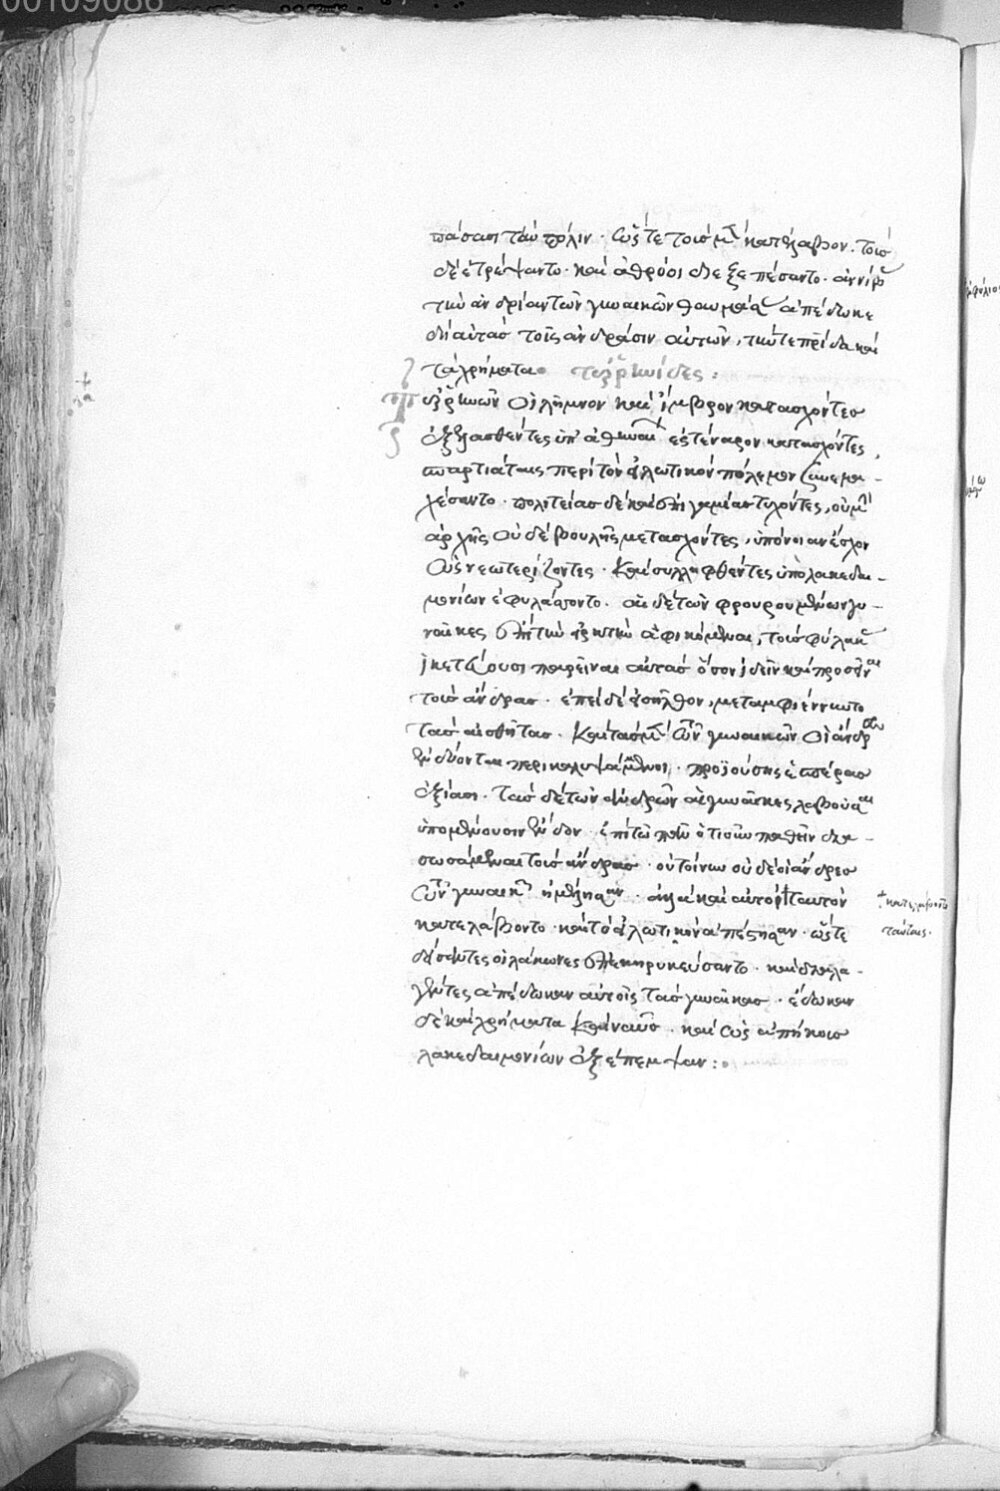 00109086
πάσαι τὴν πόλιν · ὥστε τοὺς μὲν κατέλαβον · τοὺς
δὲ ἐτρέψαντο · καὶ ἀθρόοι διεξεπέσαντο · ἀννίβας
τὴν ἀνδρίαν τῶν γυναικῶν θαυμάσας ἀπέδωκε
δι' αὐτὰς τοῖς ἀνδράσιν αὐτῶν, τήν τε πατρίδα καὶ
τὰ χρήματα · τυῤῥηνίδες :
τυῤῥηνῶν οἱ λῆμνον καὶ ἴμβρον κατασχόντες
ἐξελασθέντες ὑπ' ἀθηναίων ἐς τέναρον κατασχόντες,
σπαρτιάταις περὶ τὸν εἱλωτικὸν πόλεμον συνεμα-
χέσαντο · πολιτείας δὲ καὶ ἐπιγαμίας τυχόντες, οὐ μὴν
ἀρχῆς οὐδὲ βουλῆς μετασχόντες, ὑπόνοιαν ἔσχον
ὡς νεωτερίζοντες · καὶ συλληφθέντες ὑπὸ λακεδαι-
μονίων ἐφυλάττοντο · αἱ δὲ τῶν φρουρουμένων γυ-
ναῖκες ἐπὶ τὴν εἱρκτὴν ἀφικόμεναι, τοὺς φύλακας
ἱκετεύουσι παρεῖναι αὐτὰς ὅσον ἰδεῖν καὶ προσειπεῖν
τοὺς ἄνδρας · ἐπεὶ δὲ εἰσῆλθον, μεταμφιέννυντο
τὰς ἐσθῆτας · καὶ τὰς μὲν τῶν γυναικῶν οἱ ἄνδρες
ἐνδύονται περικαλυψάμενοι · προϊούσης ἑσπέρας
ἐξίασι · τὰς δὲ τῶν ἀνδρῶν αἱ γυναῖκες λαβοῦσαι
ὑπομένουσιν ἔνδον · ἐπὶ τῷ πᾶν ὁτιοῦν παθεῖν δια-
σωσάμεναι τοὺς ἄνδρας · οὐ τοίνυν οὐδὲ οἱ ἄνδρες
τῶν γυναικῶν ἠμέλησαν · ἀλλὰ καὶ αὐτοὶ τὸ ταΰγετον
κατελάβοντο · καὶ τὸ εἱλωτικὸν ἀπέστησαν · ὥστε
δείσαντες οἱ λάκωνες ἐπεκηρυκεύσαντο · καὶ διαλλα-
γέντες ἀπέδωκαν αὐτοῖς τὰς γυναῖκας · ἔδωκαν
δὲ καὶ χρήματα καὶ ναῦς · καὶ ὡς ἀποίκους
λακεδαιμονίων ἐξέπεμψαν :